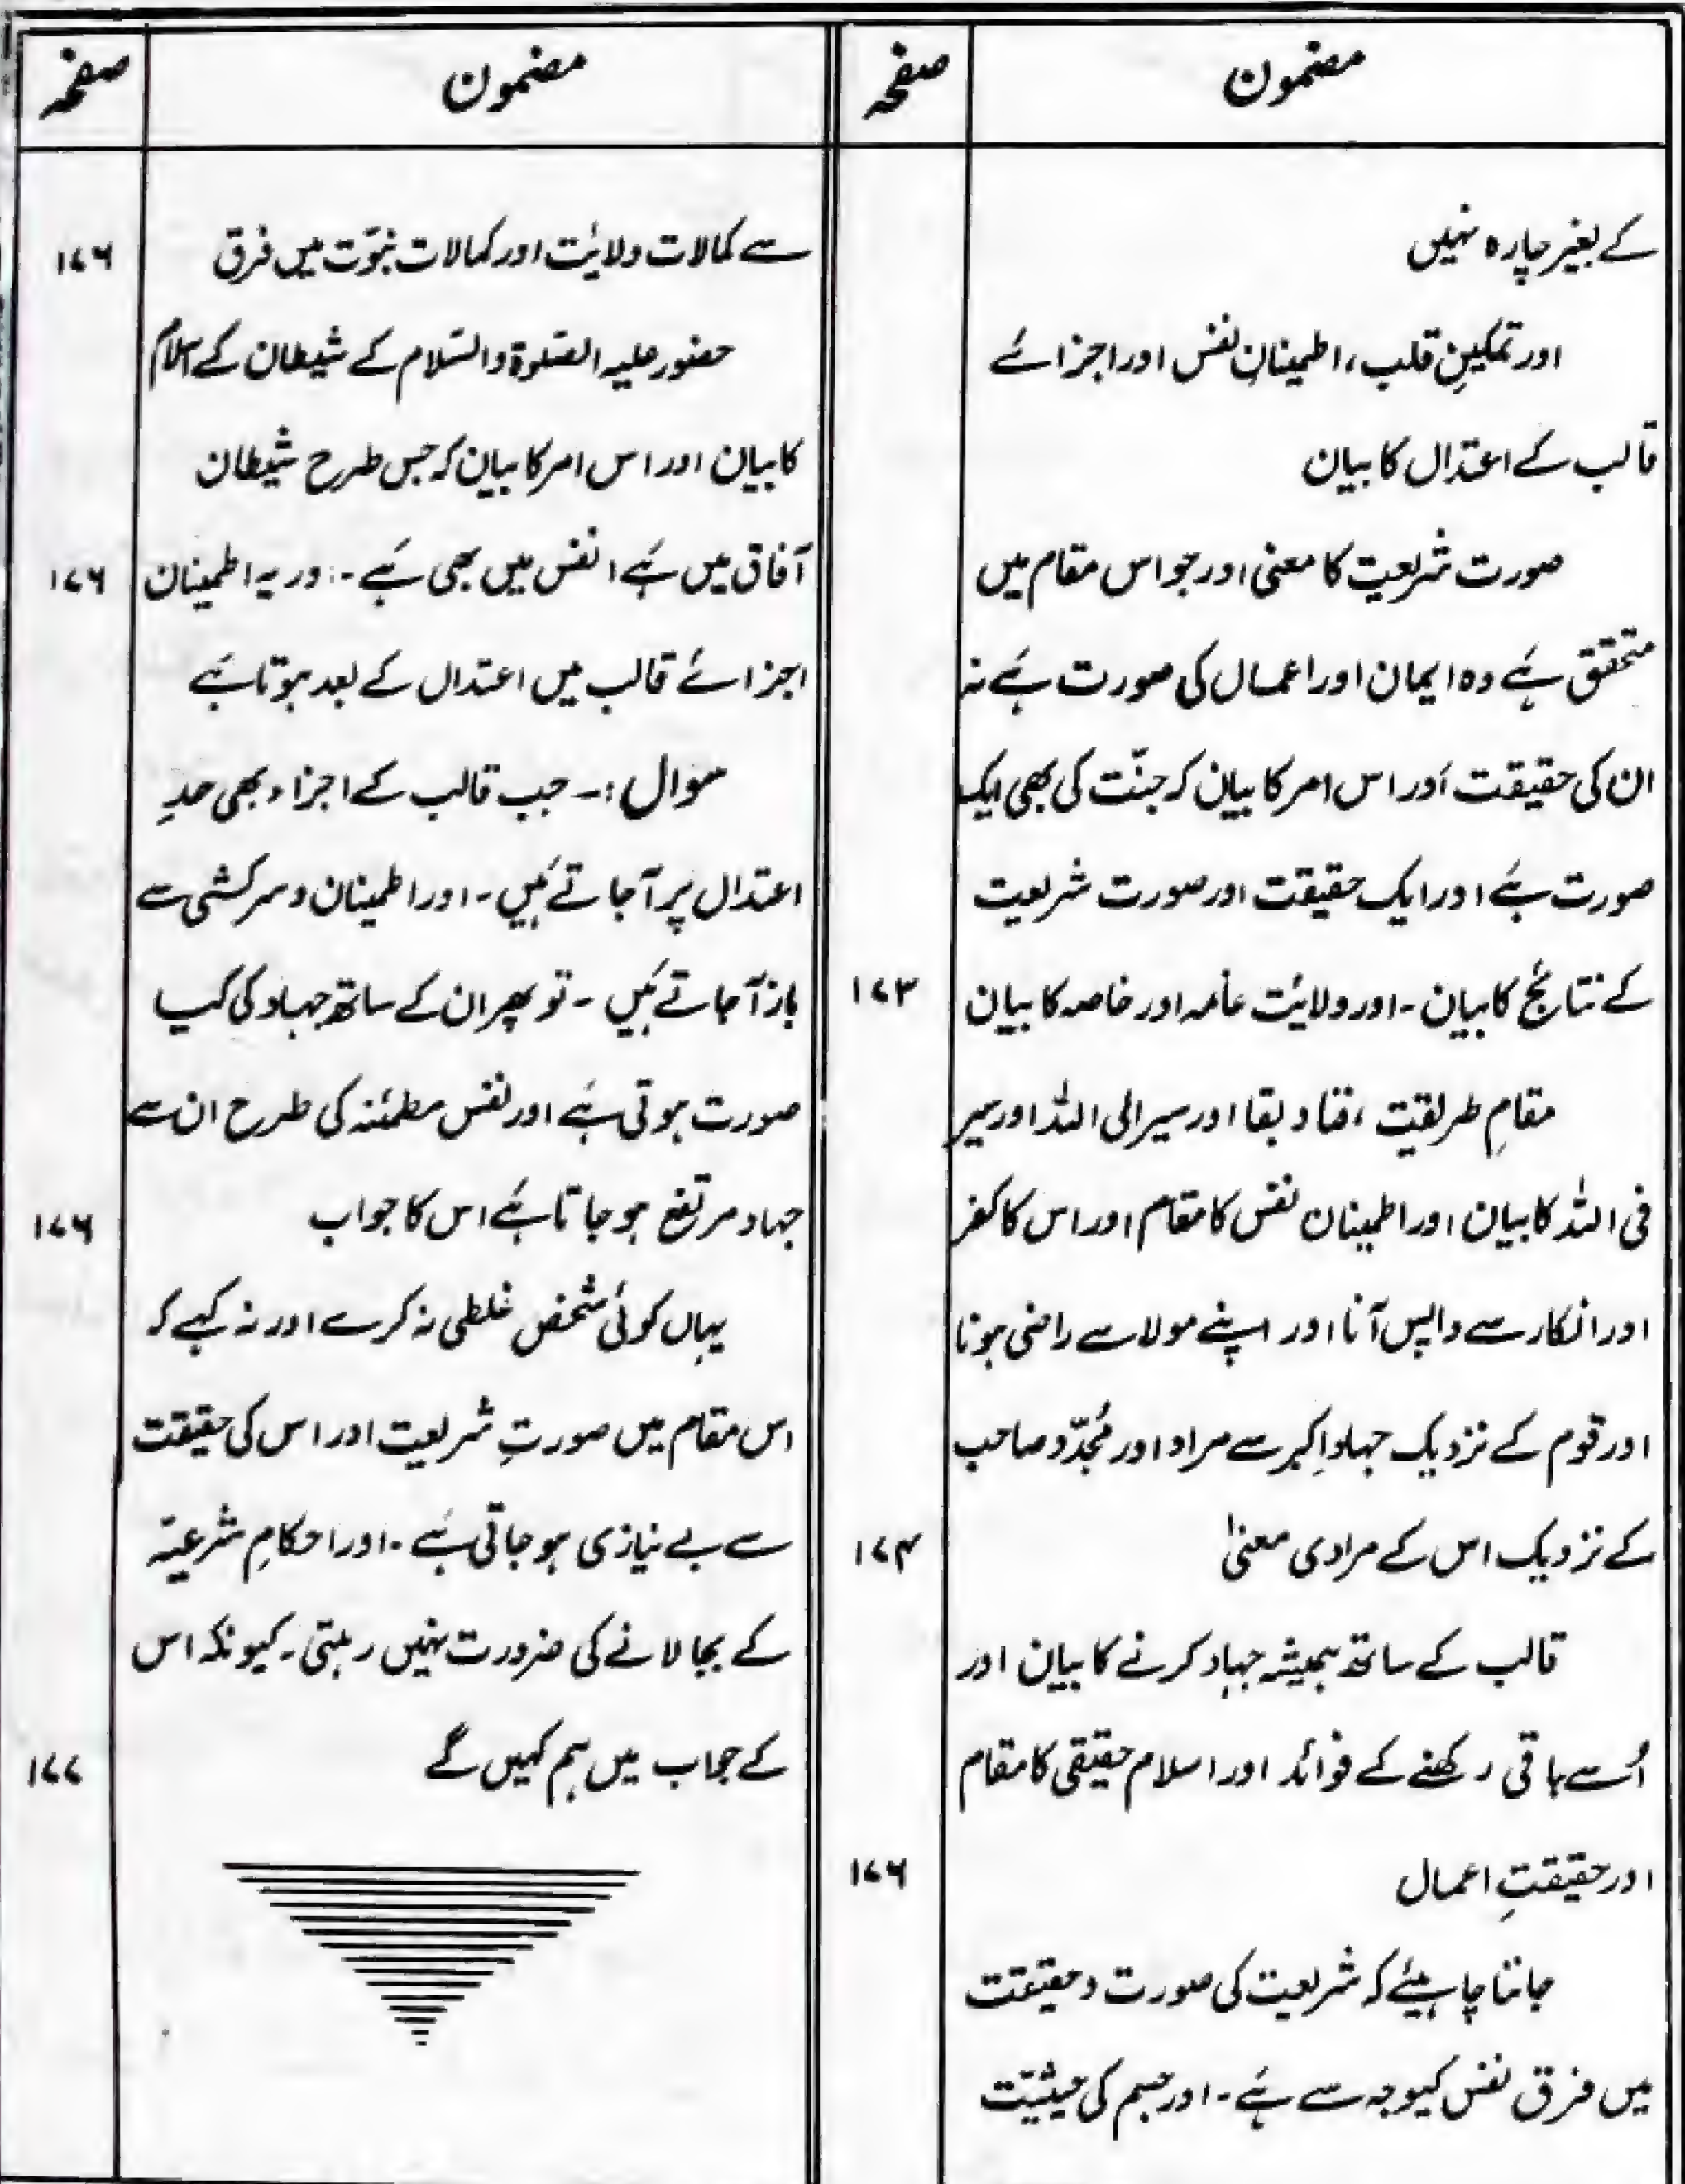 مضمون صفحہ
کے بغیر چارہ نہیں
اور تمکینِ قلب، اطمینانِ نفس اور اجزائے
قالب کے اعتدال کا بیان
صورت شریعت کا معنی اور جو اس مقام میں
متحقق ہے وہ ایمان اور اعمال کی صورت ہے نہ
ان کی حقیقت اور اس امر کا بیان کہ جنّت کی بھی ایک
صورت ہے اور ایک حقیقت اور صورت شریعت
کے نتائج کا بیان - اور ولایت عامہ اور خاصہ کا بیان ۱۷۳
مقامِ طریقت، فنا و بقا اور سیر الی اللہ اور سیر
فی اللہ کا بیان اور اطمینان نفس کا مقام اور اس کا کفر
اور انکار سے واپس آنا اور اپنے مولا سے راضی ہونا
اور قوم کے نزدیک جہادِ اکبر سے مراد اور مُجدّد صاحب
کے نزدیک اس کے مرادی معنیٰ ۱۷۴
قالب کے ساتھ ہمیشہ جہاد کرنے کا بیان اور
اُسے باقی رکھنے کے فوائد اور اسلام حقیقی کا مقام
اور حقیقتِ اعمال ۱۷۶
جاننا چاہیئے کہ شریعت کی صورت و حقیقت
میں فرق نفس کیوجہ سے ہے - اور جسم کی حیثیّت
مضمون صفحہ
سے کمالات ولایت اور کمالات نبوّت میں فرق ۱۷۶
حضور علیہ الصّلوٰۃ والسّلام کے شیطان کے اسلام
کا بیان اور اس امر کا بیان کہ جس طرح شیطان
آفاق میں ہے انفس میں بھی ہے - اور یہ اطمینان ۱۷۶
اجزائے قالب میں اعتدال کے بعد ہوتا ہے
سوال :- جب قالب کے اجزاء بھی حدِ
اعتدال پر آجاتے ہیں - اور اطمینان و سرکشی سے
باز آجاتے ہیں - تو پھر ان کے ساتھ جہاد کی کیا
صورت ہوتی ہے اور نفس مطمئنہ کی طرح ان سے
جہاد مرتفع ہو جاتا ہے اس کا جواب ۱۷۶
یہاں کوئی شخص غلطی نہ کرے اور نہ کہے کہ
اس مقام میں صورتِ شریعت اور اس کی حقیقت
سے بے نیازی ہو جاتی ہے - اور احکامِ شرعیّہ
کے بجا لانے کی ضرورت نہیں رہتی - کیونکہ اس
کے جواب میں ہم کہیں گے ۱۷۷